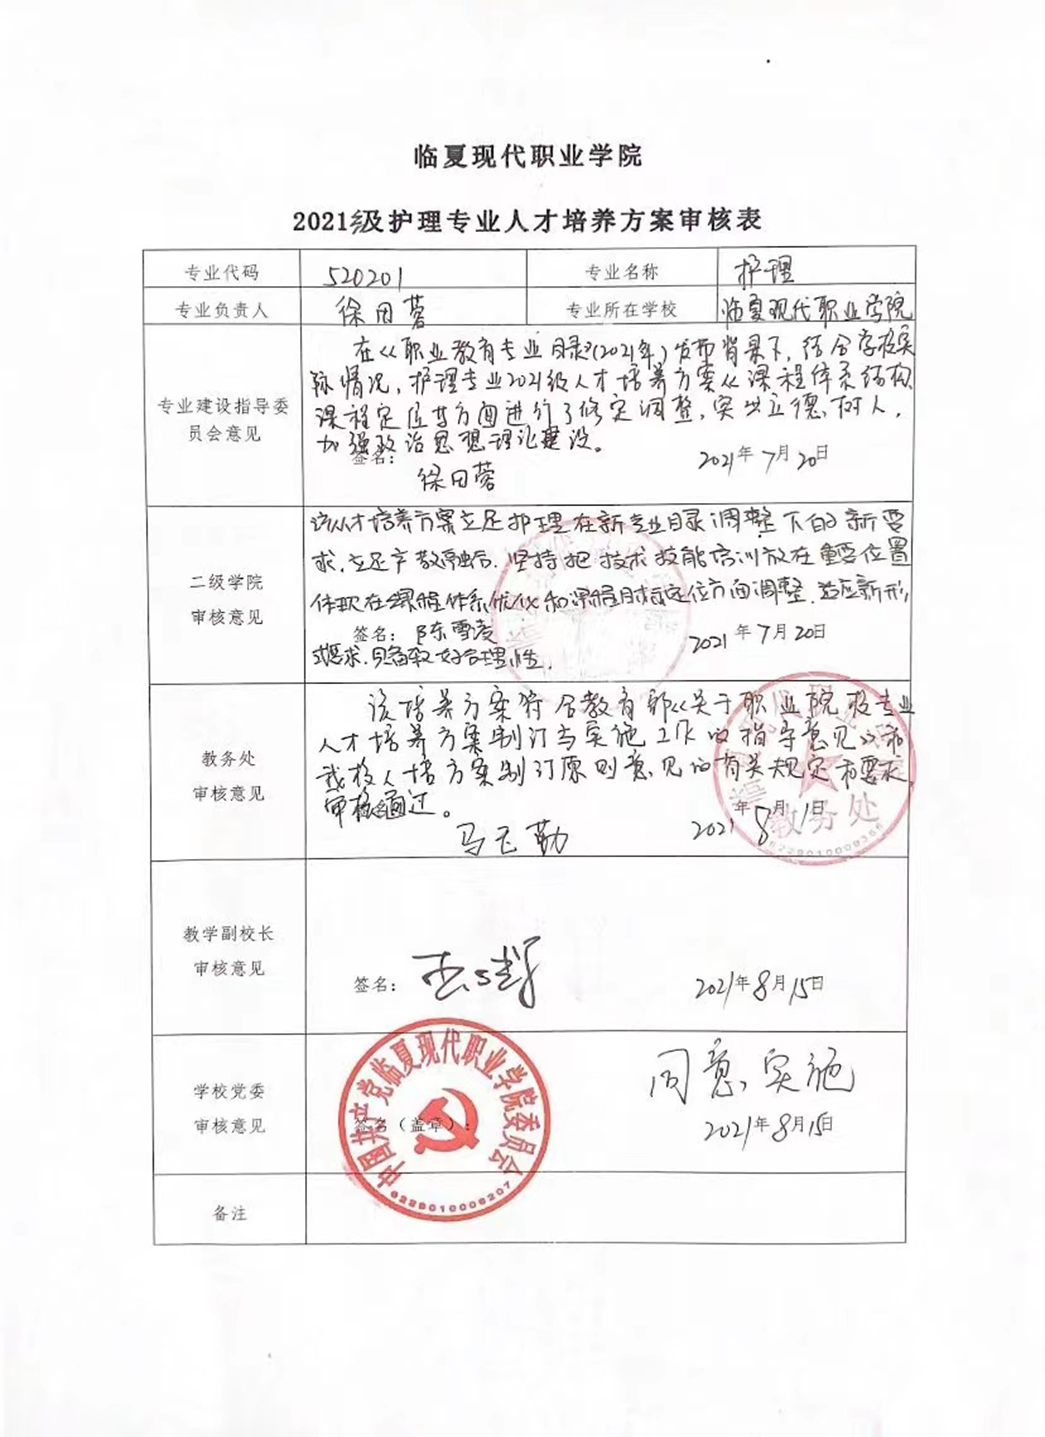 临夏现代职业学院
2021级护理专业人才培养方案审核表
专业代码 520201 专业名称 护理
专业负责人 徐田蓉 专业所在学校 临夏现代职业学院
专业建设指导委
员会意见
在《职业教育专业目录》(2021年)发布背景下,结合学校实
际情况,护理专业2021级人才培养方案从课程体系结构
课程定位等方面进行了修定调整,突出立德树人,
加强政治思想理论建设。
签名:
徐田蓉
2021年7月20日
二级学院
审核意见
该人才培养方案立足护理在新专业目录调整下的新要
求,立足产教融合,坚持把技术技能培训放在重要位置
体现在课程体系优化和课程目标定位方面调整,适应新形
签名: 陈雪凌 2021年7月20日
式要求,具备较好合理性.
教务处
审核意见
该培养方案符合教育部《关于职业院校专业
人才培养方案制订与实施工作的指导意见》和
我校人培方案制订原则意见的有关规定和要求
审核通过。
马飞勤
2021年8月1日
教务处
6229010009366
教学副校长
审核意见
签名:
2021年8月15日
学校党委
审核意见
签名(盖章):
同意实施
2021年8月15日
中国共产党临夏现代职业学院委员会
6229010006207
备注